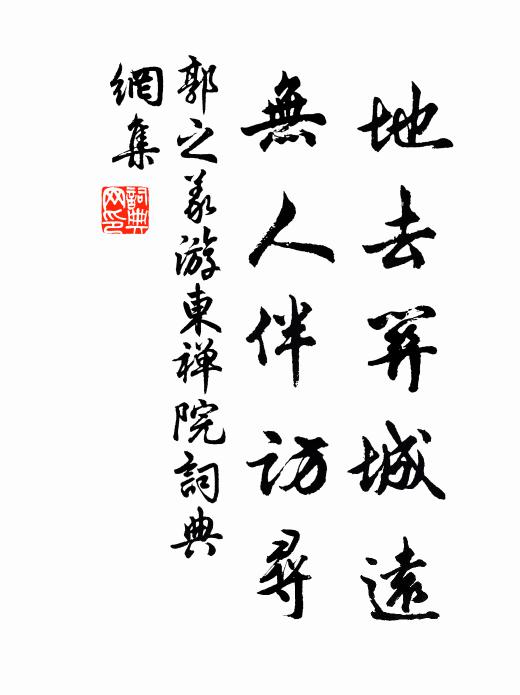 地去城遠
無人伴訪尋
郭之義游東禅院詞典
網集
詞典網印